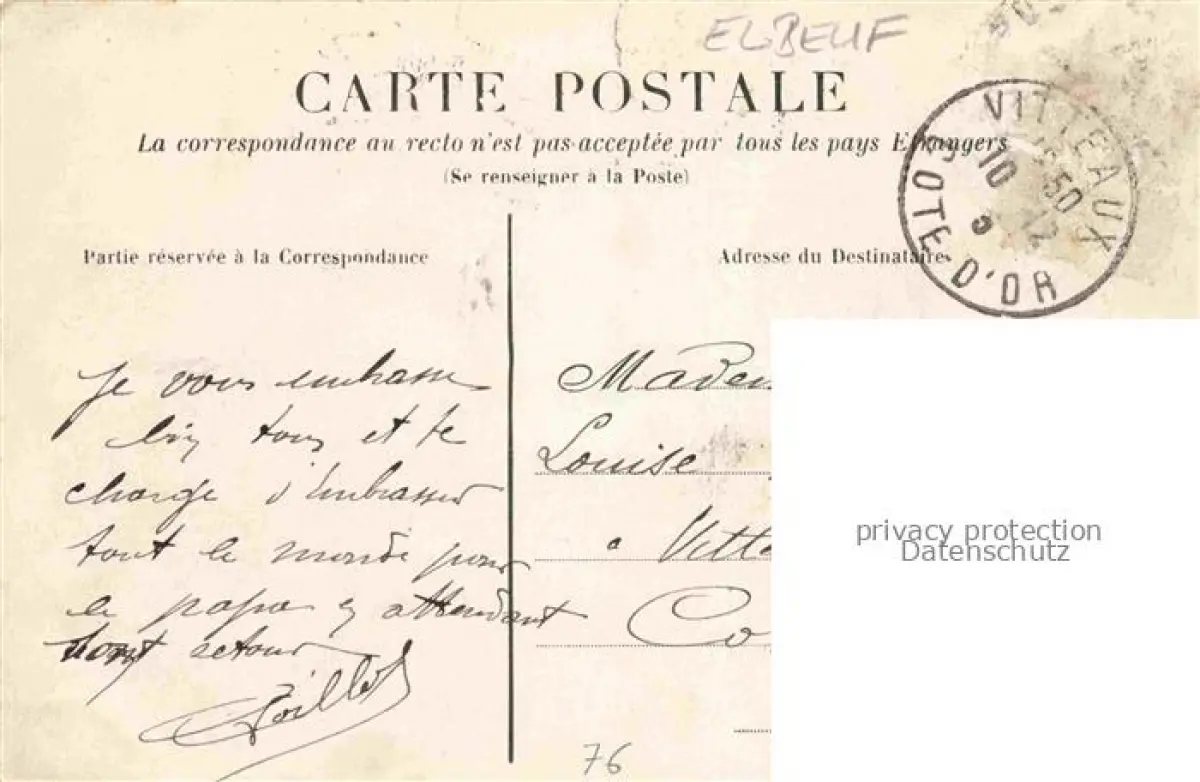 ELBEUF
CARTE POSTALE
La correspondance au recto n'est pas acceptée par tous les pays Etrangers
(Se renseigner à la Poste)
VITTEAUX
10 50
5 12
COTE D'OR
Partie réservée à la Correspondance
Adresse du Destinataire
Je vous embrasse
bien tous et te
charge d'embrasser
tout le monde pour
le papa en attendant
son retour
Madem
Louise
à Vitte
Co
privacy protection
Datenschutz
76